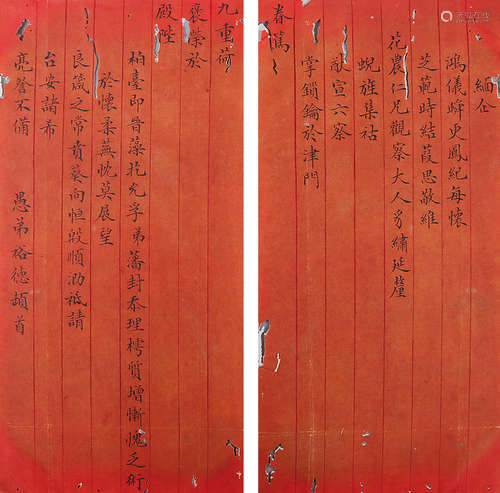 緬企
鴻儀蟀更鳳紀每懷
芝範時結葭思敬維
花農仁兄觀察大人豸繡延釐
蜺旌集祜
猷宣六察
掌鎖鑰於津門
春滿
九重荷
褒榮於
殿陛
柏臺即晉藻扢允孚弟藩封忝理樗質增慚愧乏術
於懷柔蕪忱莫展望
良箴之常賁葵向恒殷順泐祗請
台安諸希
亮詧不備 愚弟裕德頓首